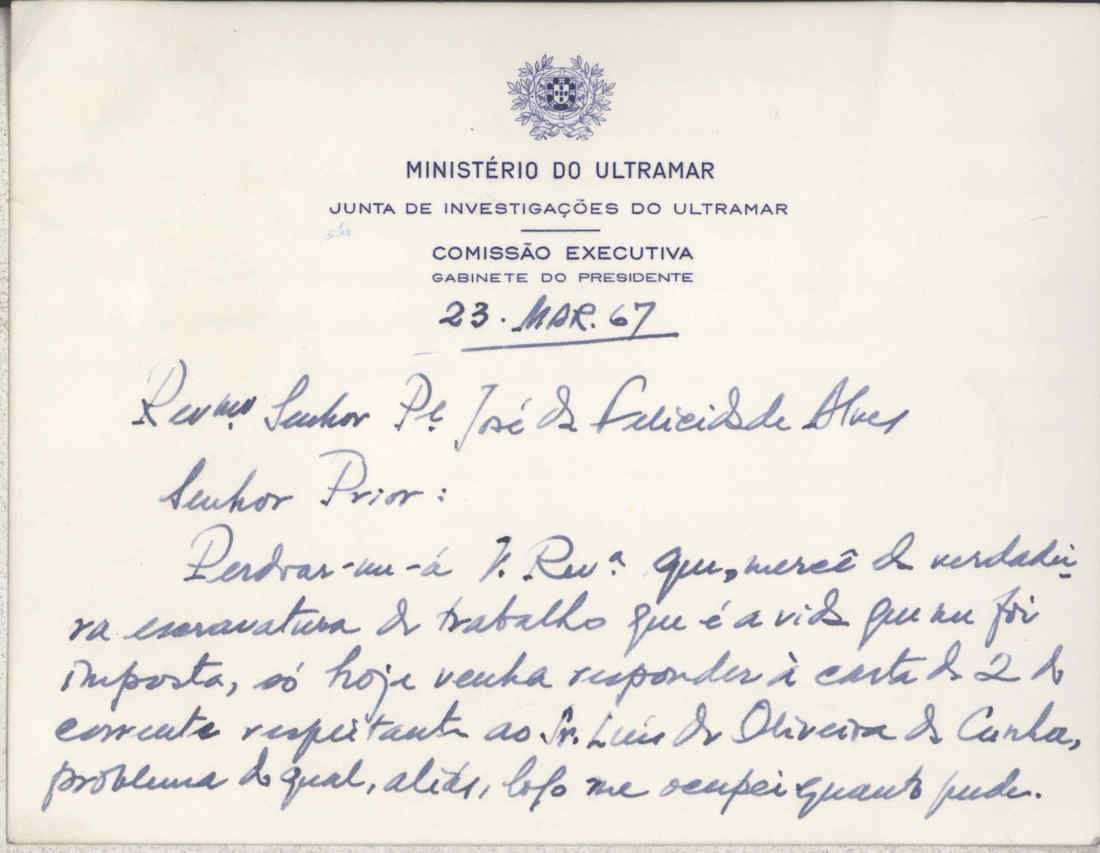 MINISTÉRIO DO ULTRAMAR
JUNTA DE INVESTIGAÇÕES DO ULTRAMAR
COMISSÃO EXECUTIVA
GABINETE DO PRESIDENTE
23. MAR. 67
Revmo. Senhor Pe. José da Felicidade Alves
Senhor Prior:
Perdoar-me-á V. Rev.ª que, mercê da verdadei-
ra escravatura do trabalho que é a vida que me foi
imposta, só hoje venha responder à carta de 2 do
corrente respeitante ao Sr. Luís de Oliveira da Cunha,
problema do qual, aliás, logo me ocupei quanto pude.